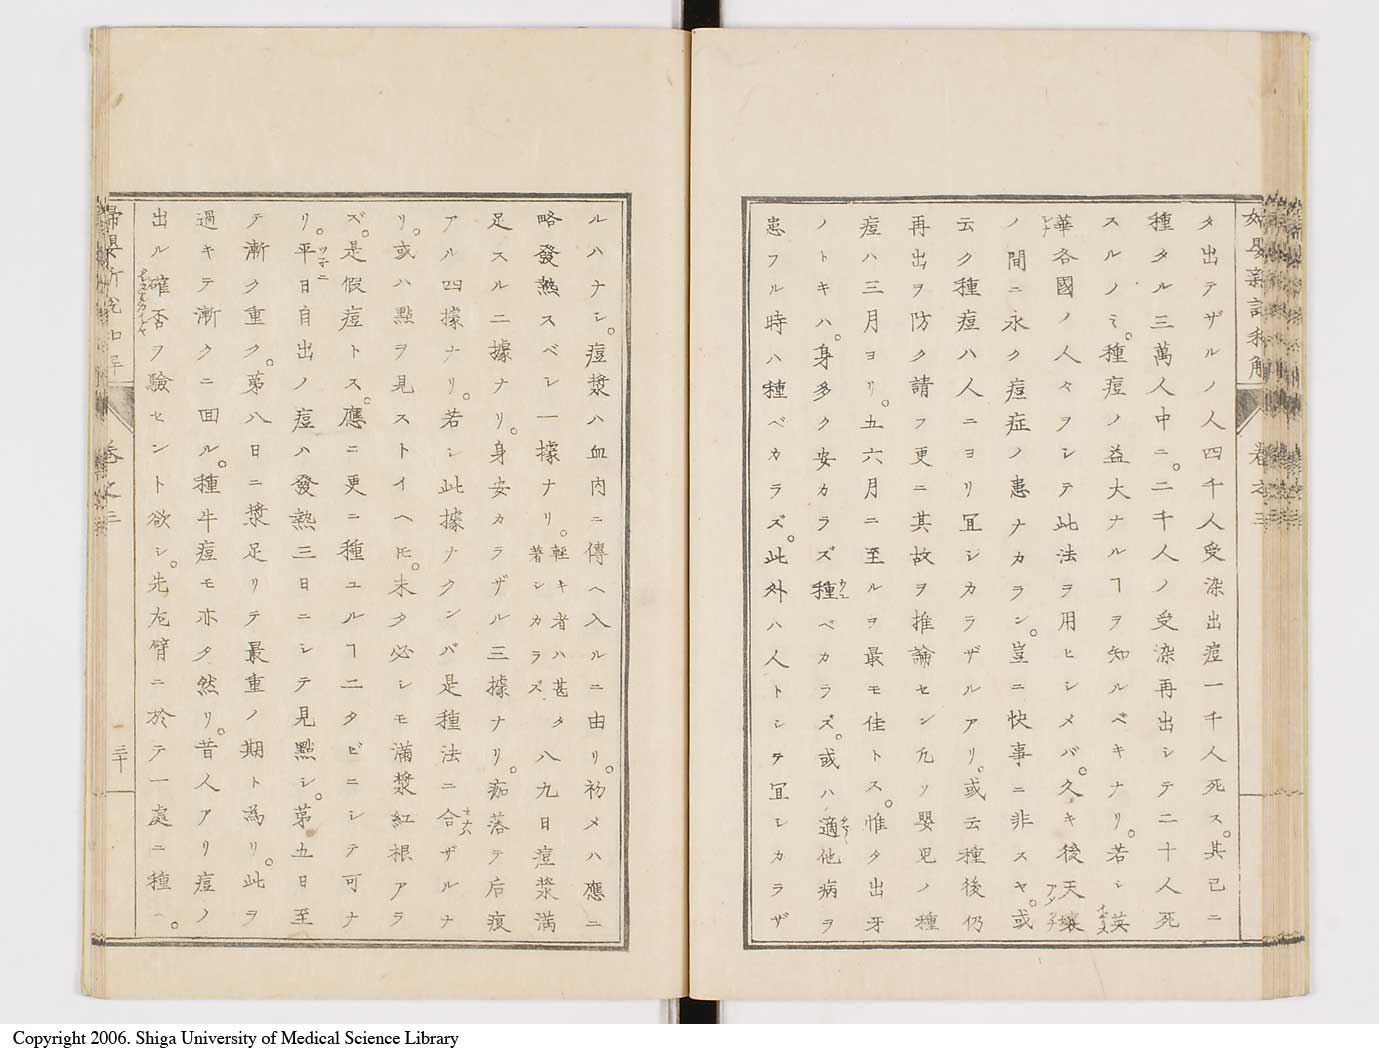 タ出テザルノ人四千人受染出痘一千人死ス。其已ニ
種タル三萬人中ニ。二千人ノ受染再出シテ二十人死
スルノミ。種痘ノ益大ナルヿヲ知ルベキナリ。若シ英
華各國ノ人々ヲシテ此法ヲ用ヒシメバ。久キ後天壤
ノ間ニ永ク痘症ノ患ナカラン。豈ニ快事ニ非スヤ。或
云ク種痘ハ人ニヨリ冝シカラザルアリ。或云種後仍
再出ヲ防ク請フ更ニ其故ヲ推論セン凢ソ嬰児ノ種
痘ハ三月ヨリ。五六月ニ至ルヲ最モ佳トス。惟タ出牙
ノトキハ。身多ク安カラズ種ベカラズ。或ハ適他病ヲ
患フル時ハ種ベカラズ。此外ハ人トシヲ冝シカラザ
ルハナシ。痘漿ハ血内ニ傳ヘ入ルニ由リ。初メハ應ニ
略發熱スベシ一據ナリ。軽キ者ハ甚タ著シカラズ八九日痘漿満
足スル二據ナリ。身安カラザル三據ナリ。痂落テ后痕
アル四據ナリ。若シ此據ナクンバ是種法ニ合ザルナ
リ。或ハ點ヲ見ストイヘ𪜈。未タ必シモ滿漿紅根アラ
ズ。是假痘トス。應ニ更ニ種ユルヿ二タビニシテ可ナ
リ。平日自出ノ痘ハ發熱三日ニシテ見點シ。第五日至
テ漸ク重ク。第八日ニ漿足リテ最重ノ期ト為リ。此ヲ
過キテ漸クニ回ル。種牛痘モ亦タ然リ。昔人アリ痘ノ
出ル確否フ驗セント欲シ。先左臂ニ於テ一處ニ種ヘ。
卷之三
三十
Copyright 2006. Shiga University of Medical Science Library